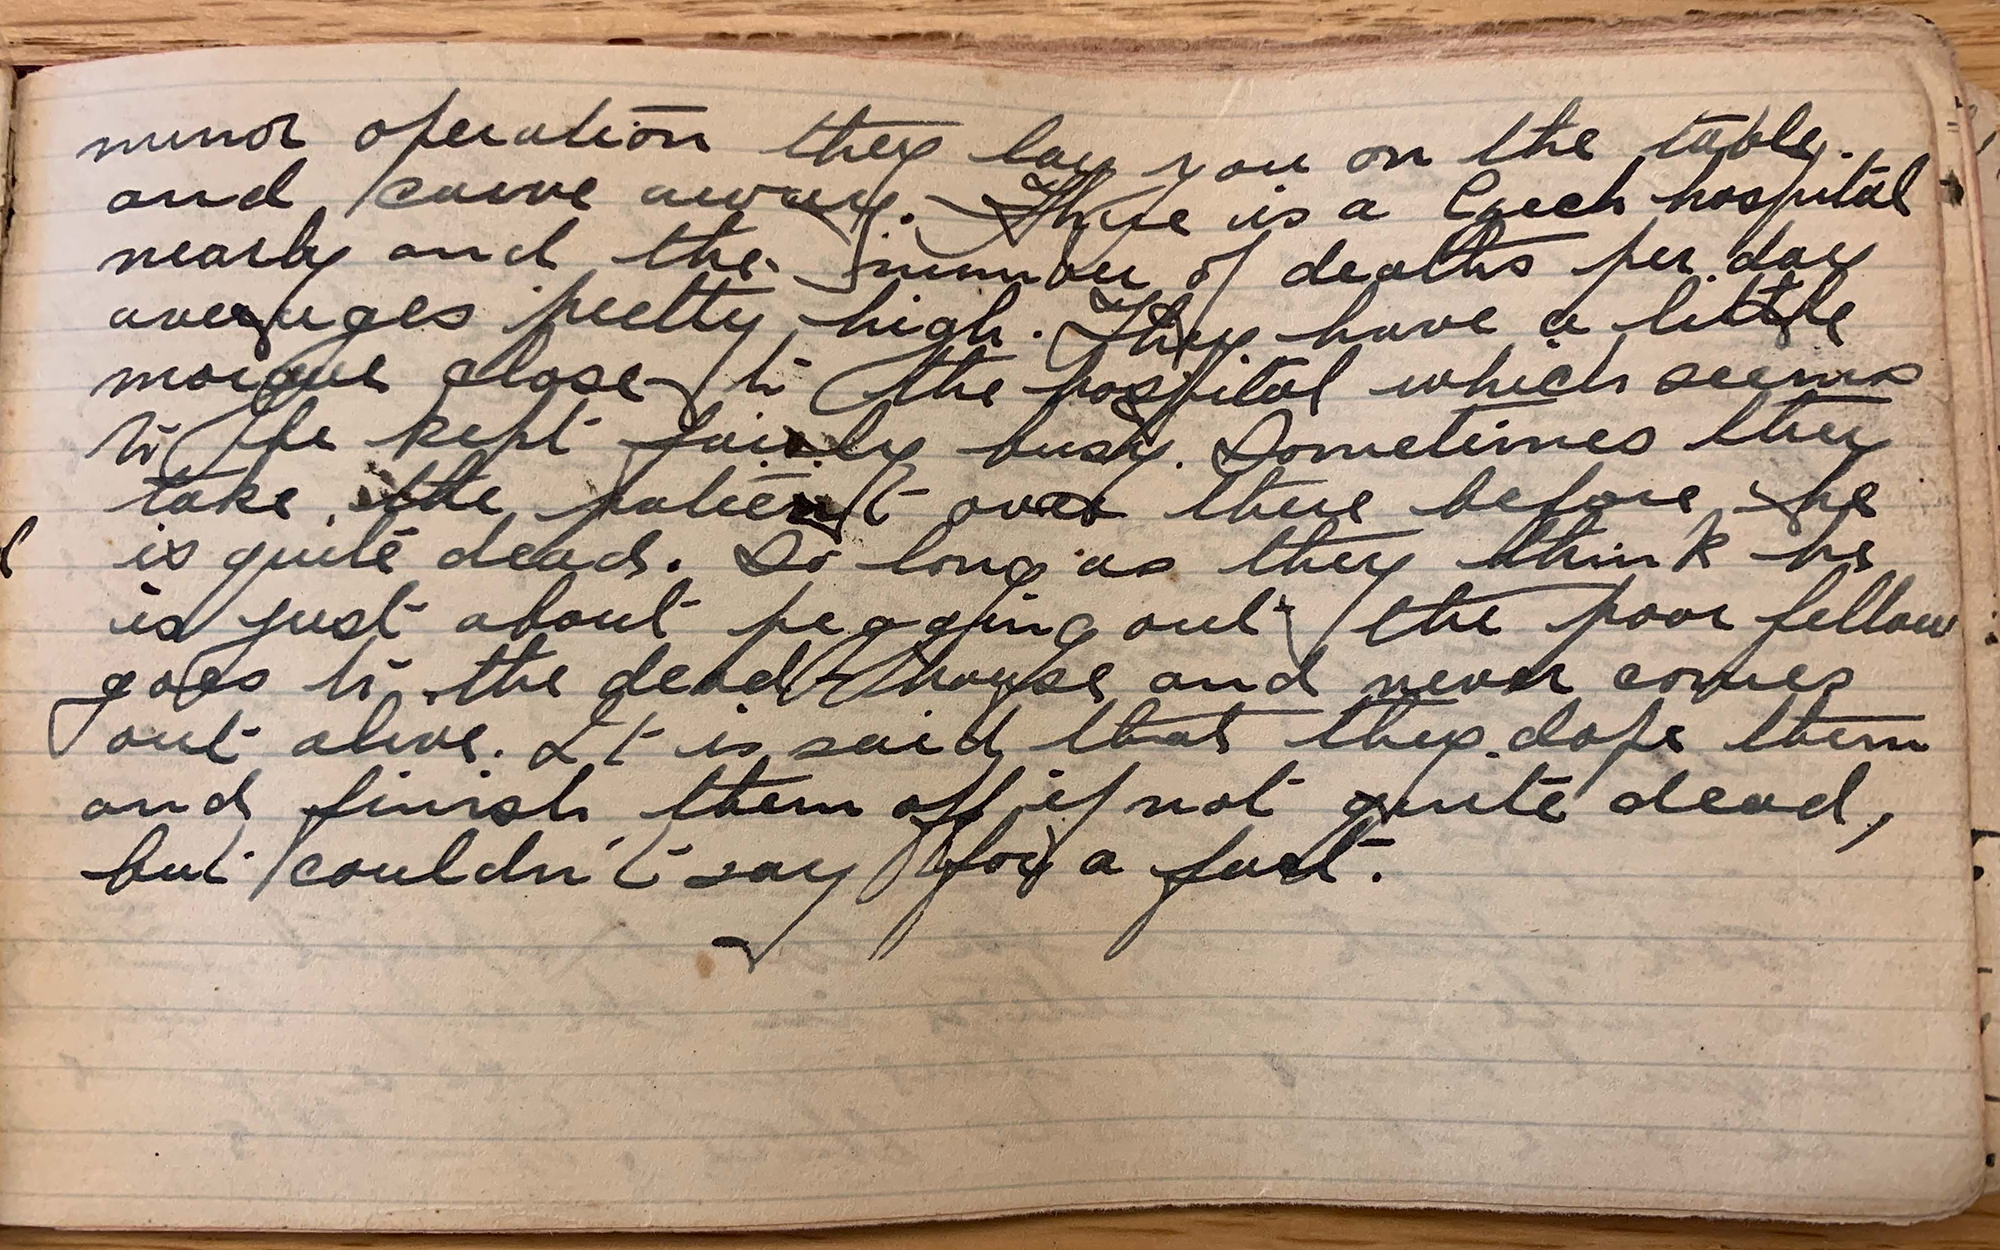 minor operation they lay you on the table.
and carve away. There is a Czech hospital
nearby and the number of deaths per day
averages pretty high. They have a little
morgue close to the hospital which seems
to be kept fairly busy. Sometimes they
take the patient over there before he
is quite dead. So long as they think he
is just about pegging out the poor fellow
goes to the dead-house and never comes
out alive. It is said that they dope them
and finish them off if not quite dead,
but couldn't say for a fact.